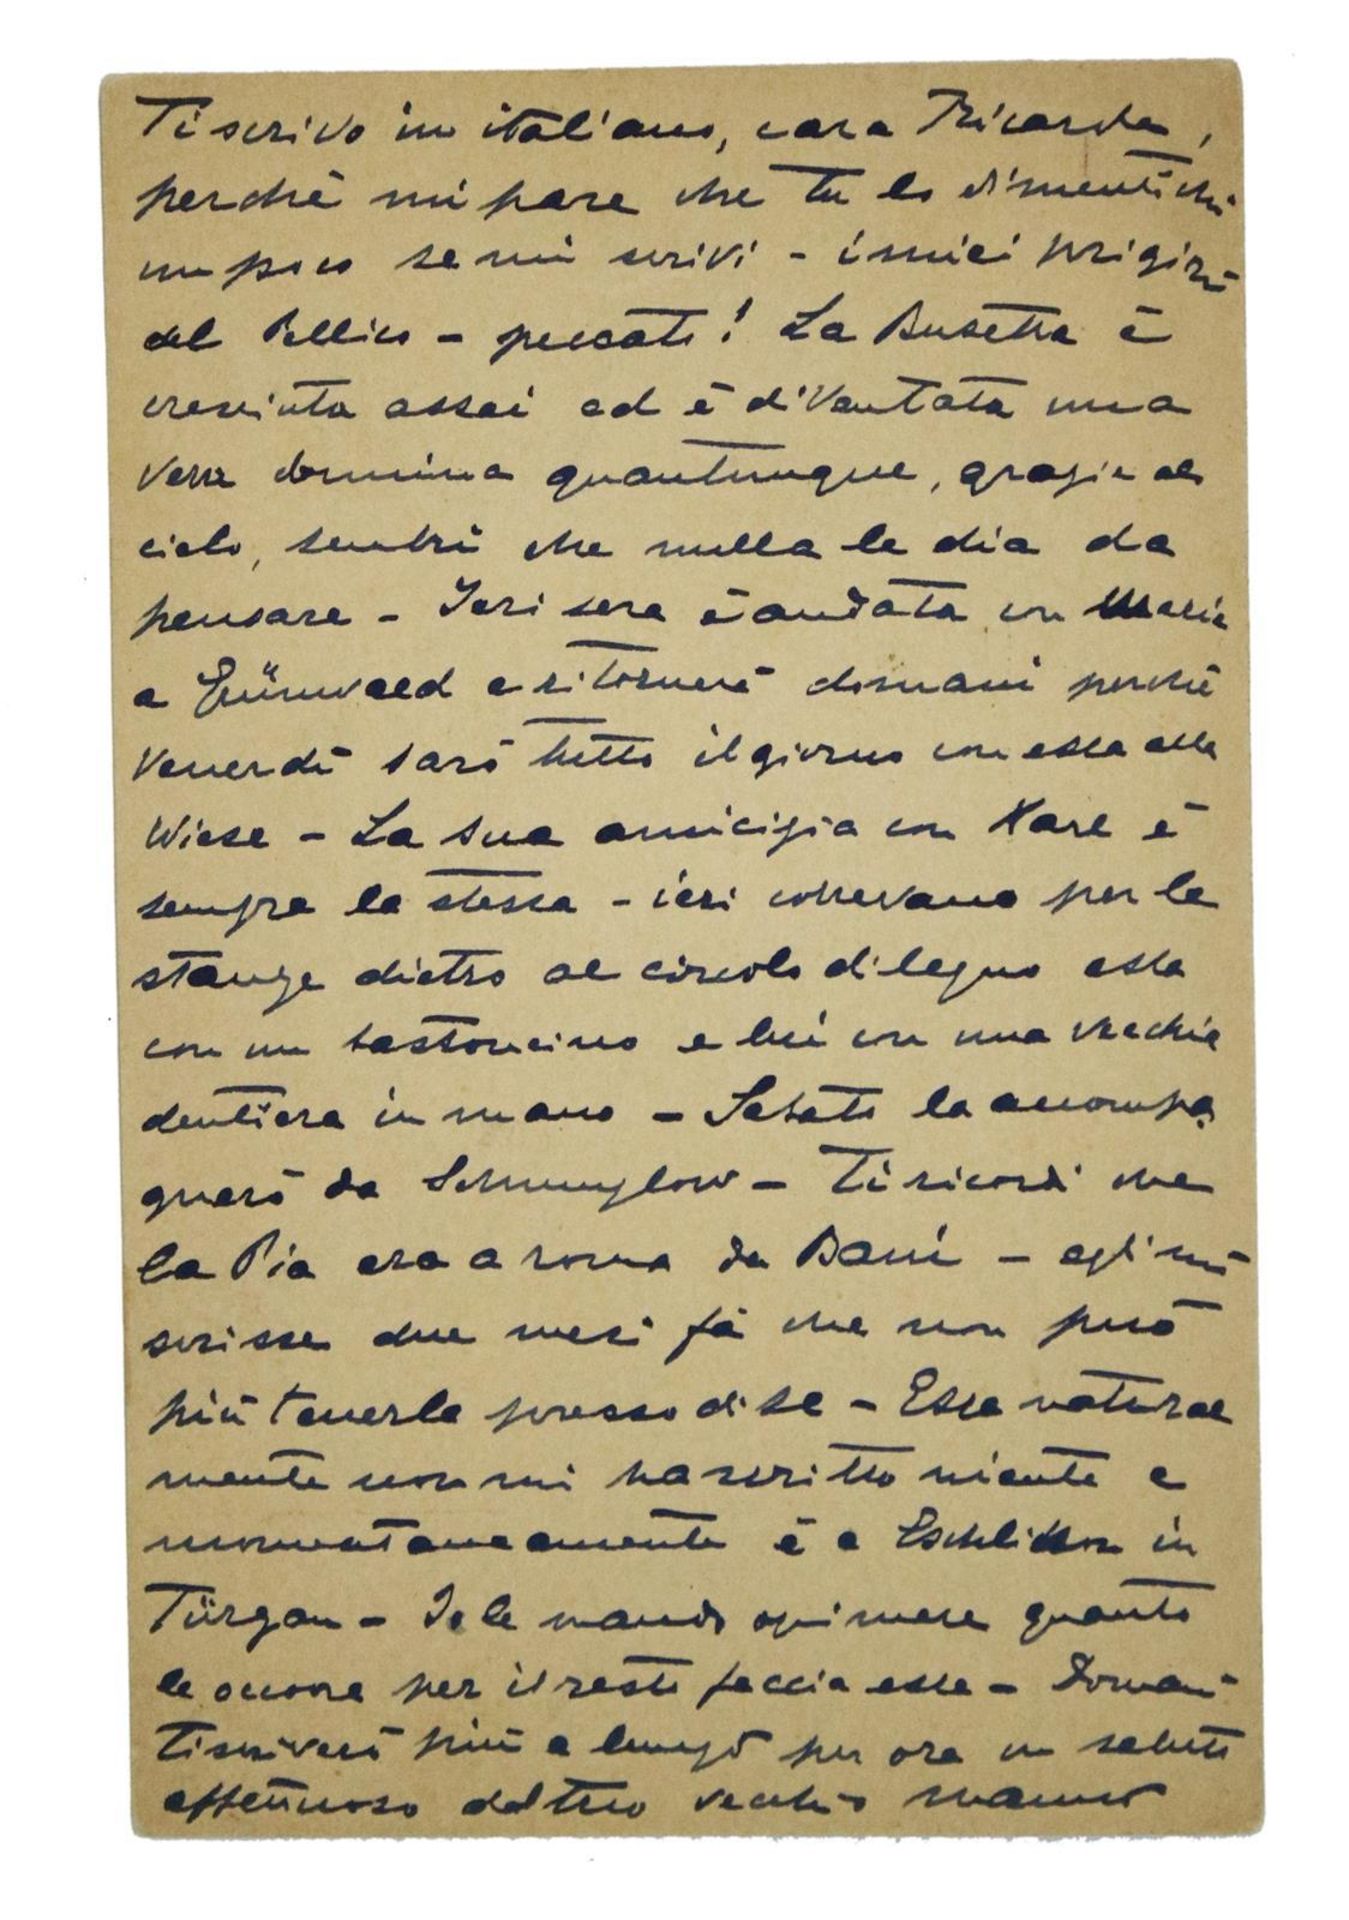 Ti scrivo in italiano, cara Ricarda,
perchè mi pare che tu lo dimentichi
un poco se mi scrivi - i miei prigioni
del Pellico - peccato! La Busetta è
cresciuta assai ed è diventata una
vera donnina quantunque, grazie al
cielo, sembri che nulla le dia da
pensare - Ieri sera è andata con Maria
a Grünwald e ritornerà domani perchè
Venerdì sarò tutto il giorno con essa alla
Wiese - La sua amicizia con Karl è
sempre la stessa - ieri correvano per le
stanze dietro al circolo di legno essa
con un bastoncino e lui con una vecchia
dentiera in mano - Sabato la accompa
gnerò da - Ti ricordi che
la Pia era a roma da - egli mi
scrisse due mesi fà che non può
più tenerla presso di se - Essa natural
mente non mi ha scritto niente e
momentaneamente è a Eschlikon in
Türgau - Io le mando ogni mese quanto
le occorre per il resto faccia essa - Domani
ti scriverò più a lungo per ora un saluto
affettuoso dal tuo vecchio